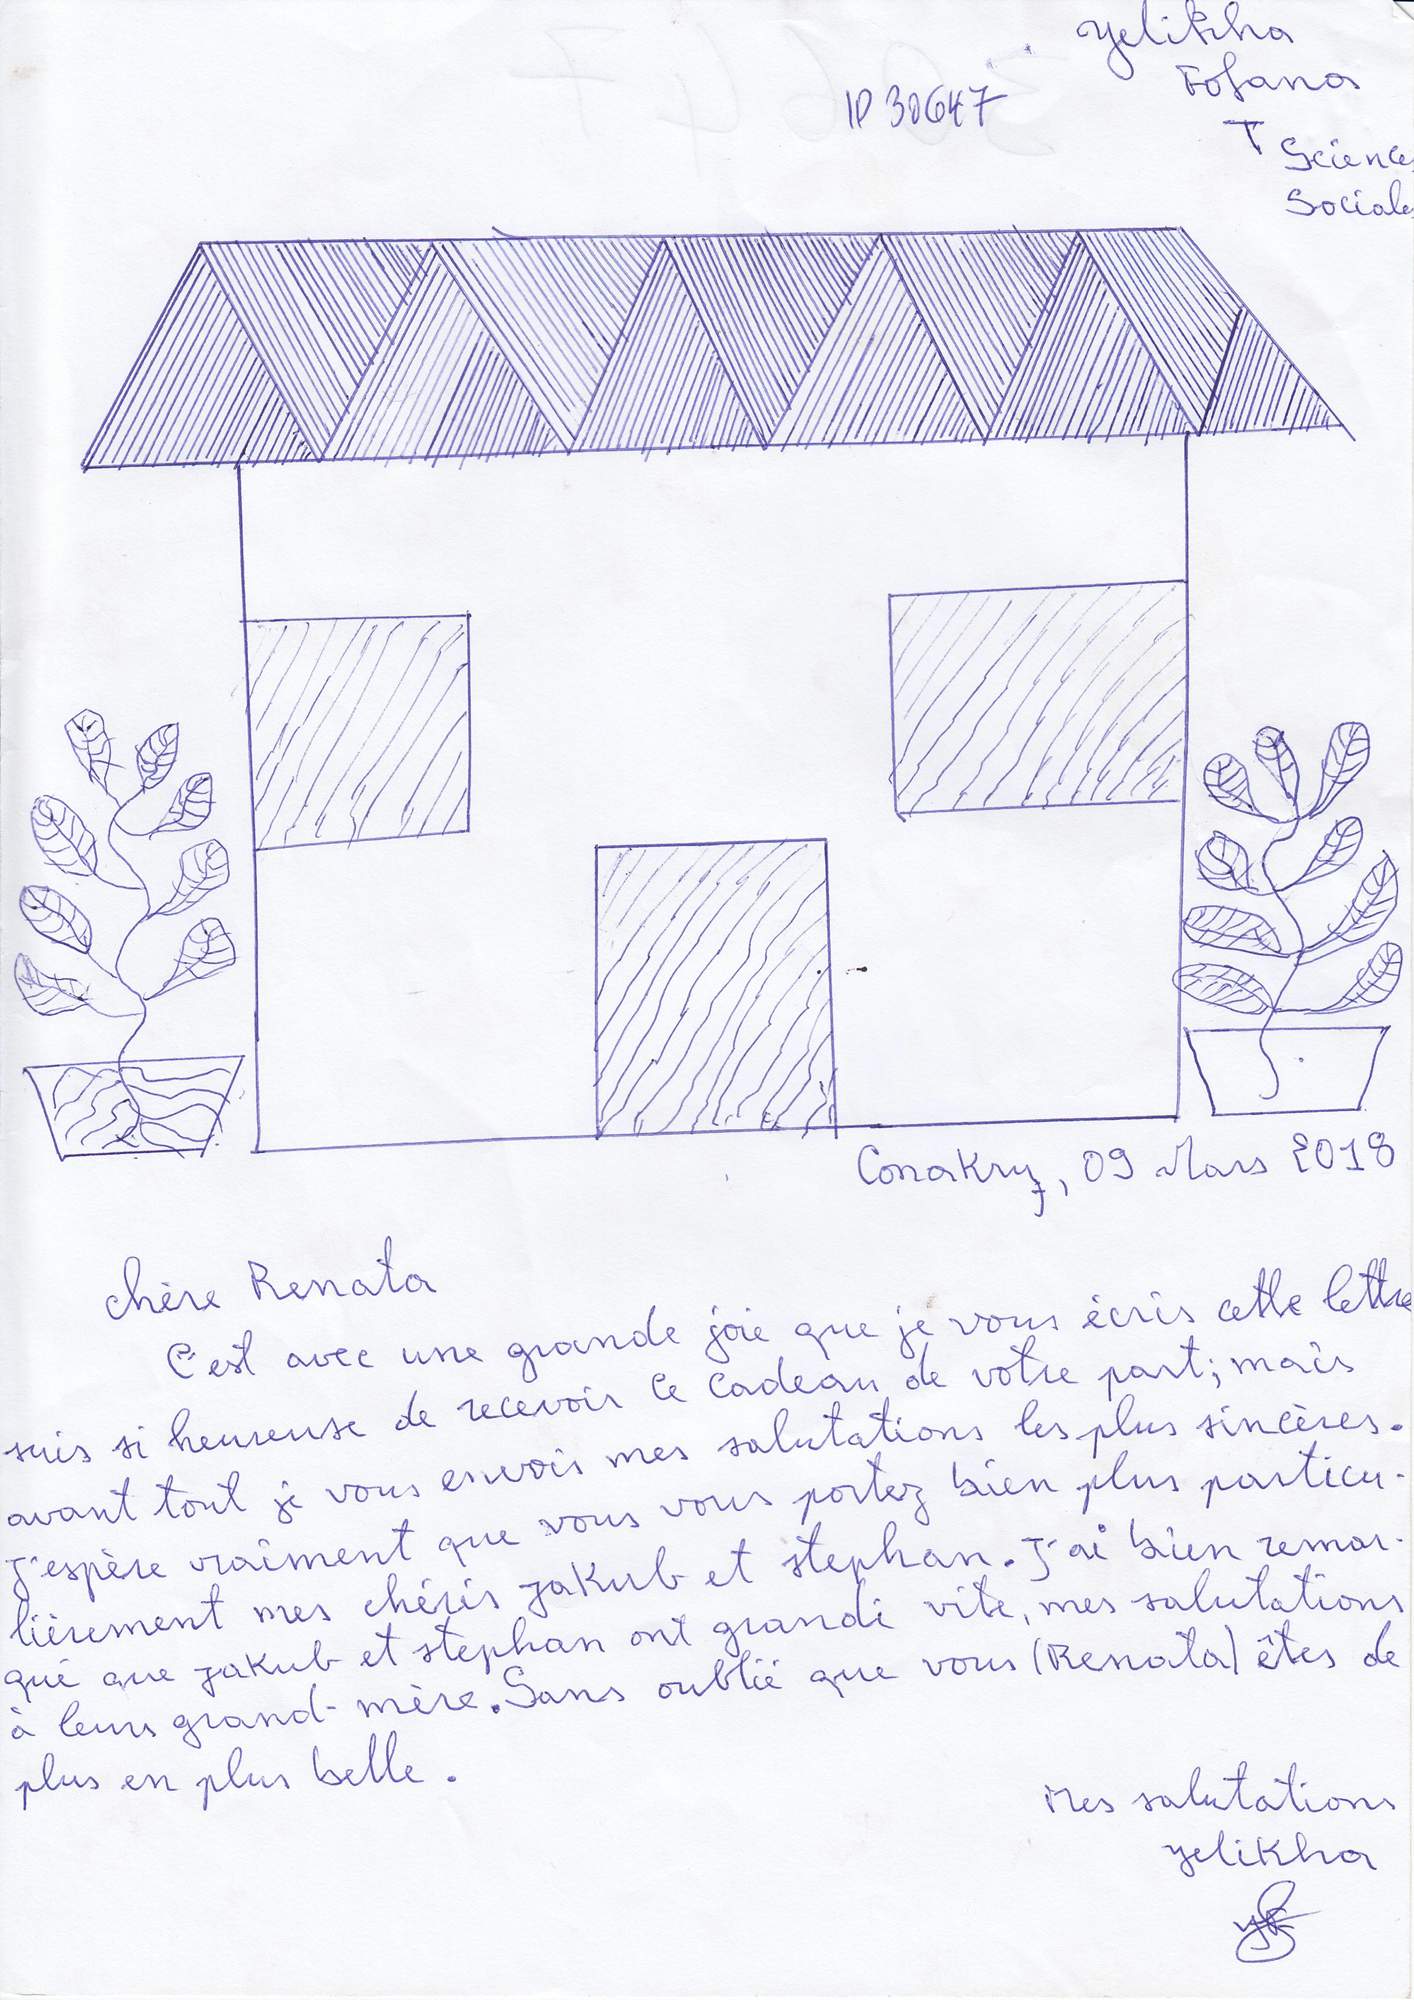 Yelikha
Fofana
ID 30647
T Sciences
Sociales
Conakry, 09 Mars 2018
chère Renata
C'est avec une grande joie que je vous écris cette lettre
suis si heureuse de recevoir ce cadeau de votre part; mais
avant tout je vous envois mes salutations les plus sincères.
J'espère vraiment que vous vous portez bien plus particu-
lièrement mes chéris Jakub et stephan. J'ai bien remar-
qué que Jakub et stephan ont grandi vite, mes salutations
à leurs grand-mère. Sans oublié que vous (Renata) êtes de
plus en plus belle.
Mes salutations
Yelikha